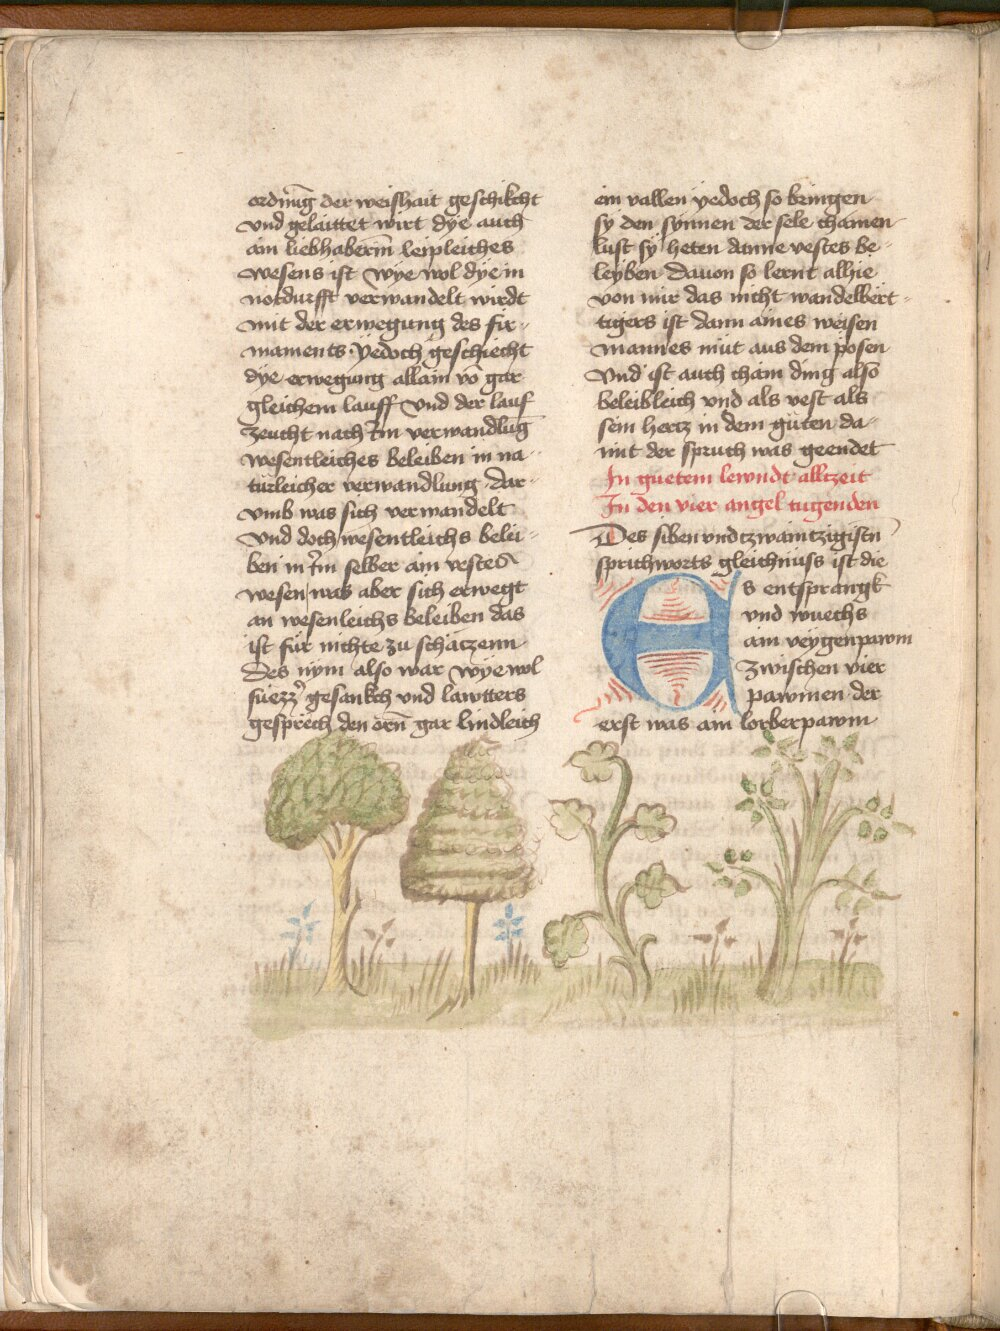 ordnu̅g der weishait geschikcht
vnd gelaittet wirt dye auch
ain liebhaberin̅ leipleiches
wesens ist wye wol dye in
notdurfft verwandelt wirdt
mit der erwegung des fir-
maments yedoch geschiecht
dye erwegung allain vo̅ gar
gleichem lauff vnd der lauf
zeucht nach im verwandlug̅
wesentleiches beleiben in na-
türleicher verwandlung dar-
vmb was sich verwandelt
vnd doch wesentleichs belei-
ben in im selber ain vestes
wesen was aber sich erwegt
an wesenleichs beleiben das
ist für nichte zu schätzenn
des nym also war wye wol
suezz gesankch vnd lawtters
gesprech den orn̅ gar lindleich
ein vallen yedoch so bringen
sy den synnen der sele chainen
lust sy heten danne vestes be-
leyben dauon so lernt allhie
von mir das nicht wandelbert-
tigers ist dann aines weisen
mannes müt aus dem posen
vnd ist auch chain ding also
beleibleich vnd als vest als
sein hertz in dem güten da-
mit der spruch was geendet
In guetem lewndt alltzeit
In den vier angel tugenden
Des siben vnd tzwaintzigistn
sprichworts gleichnüss ist die
Es entsprangk
vnd wuechs
ain veygenpawm
zwischen vier
pawmen der
erst was ain lorberpawm